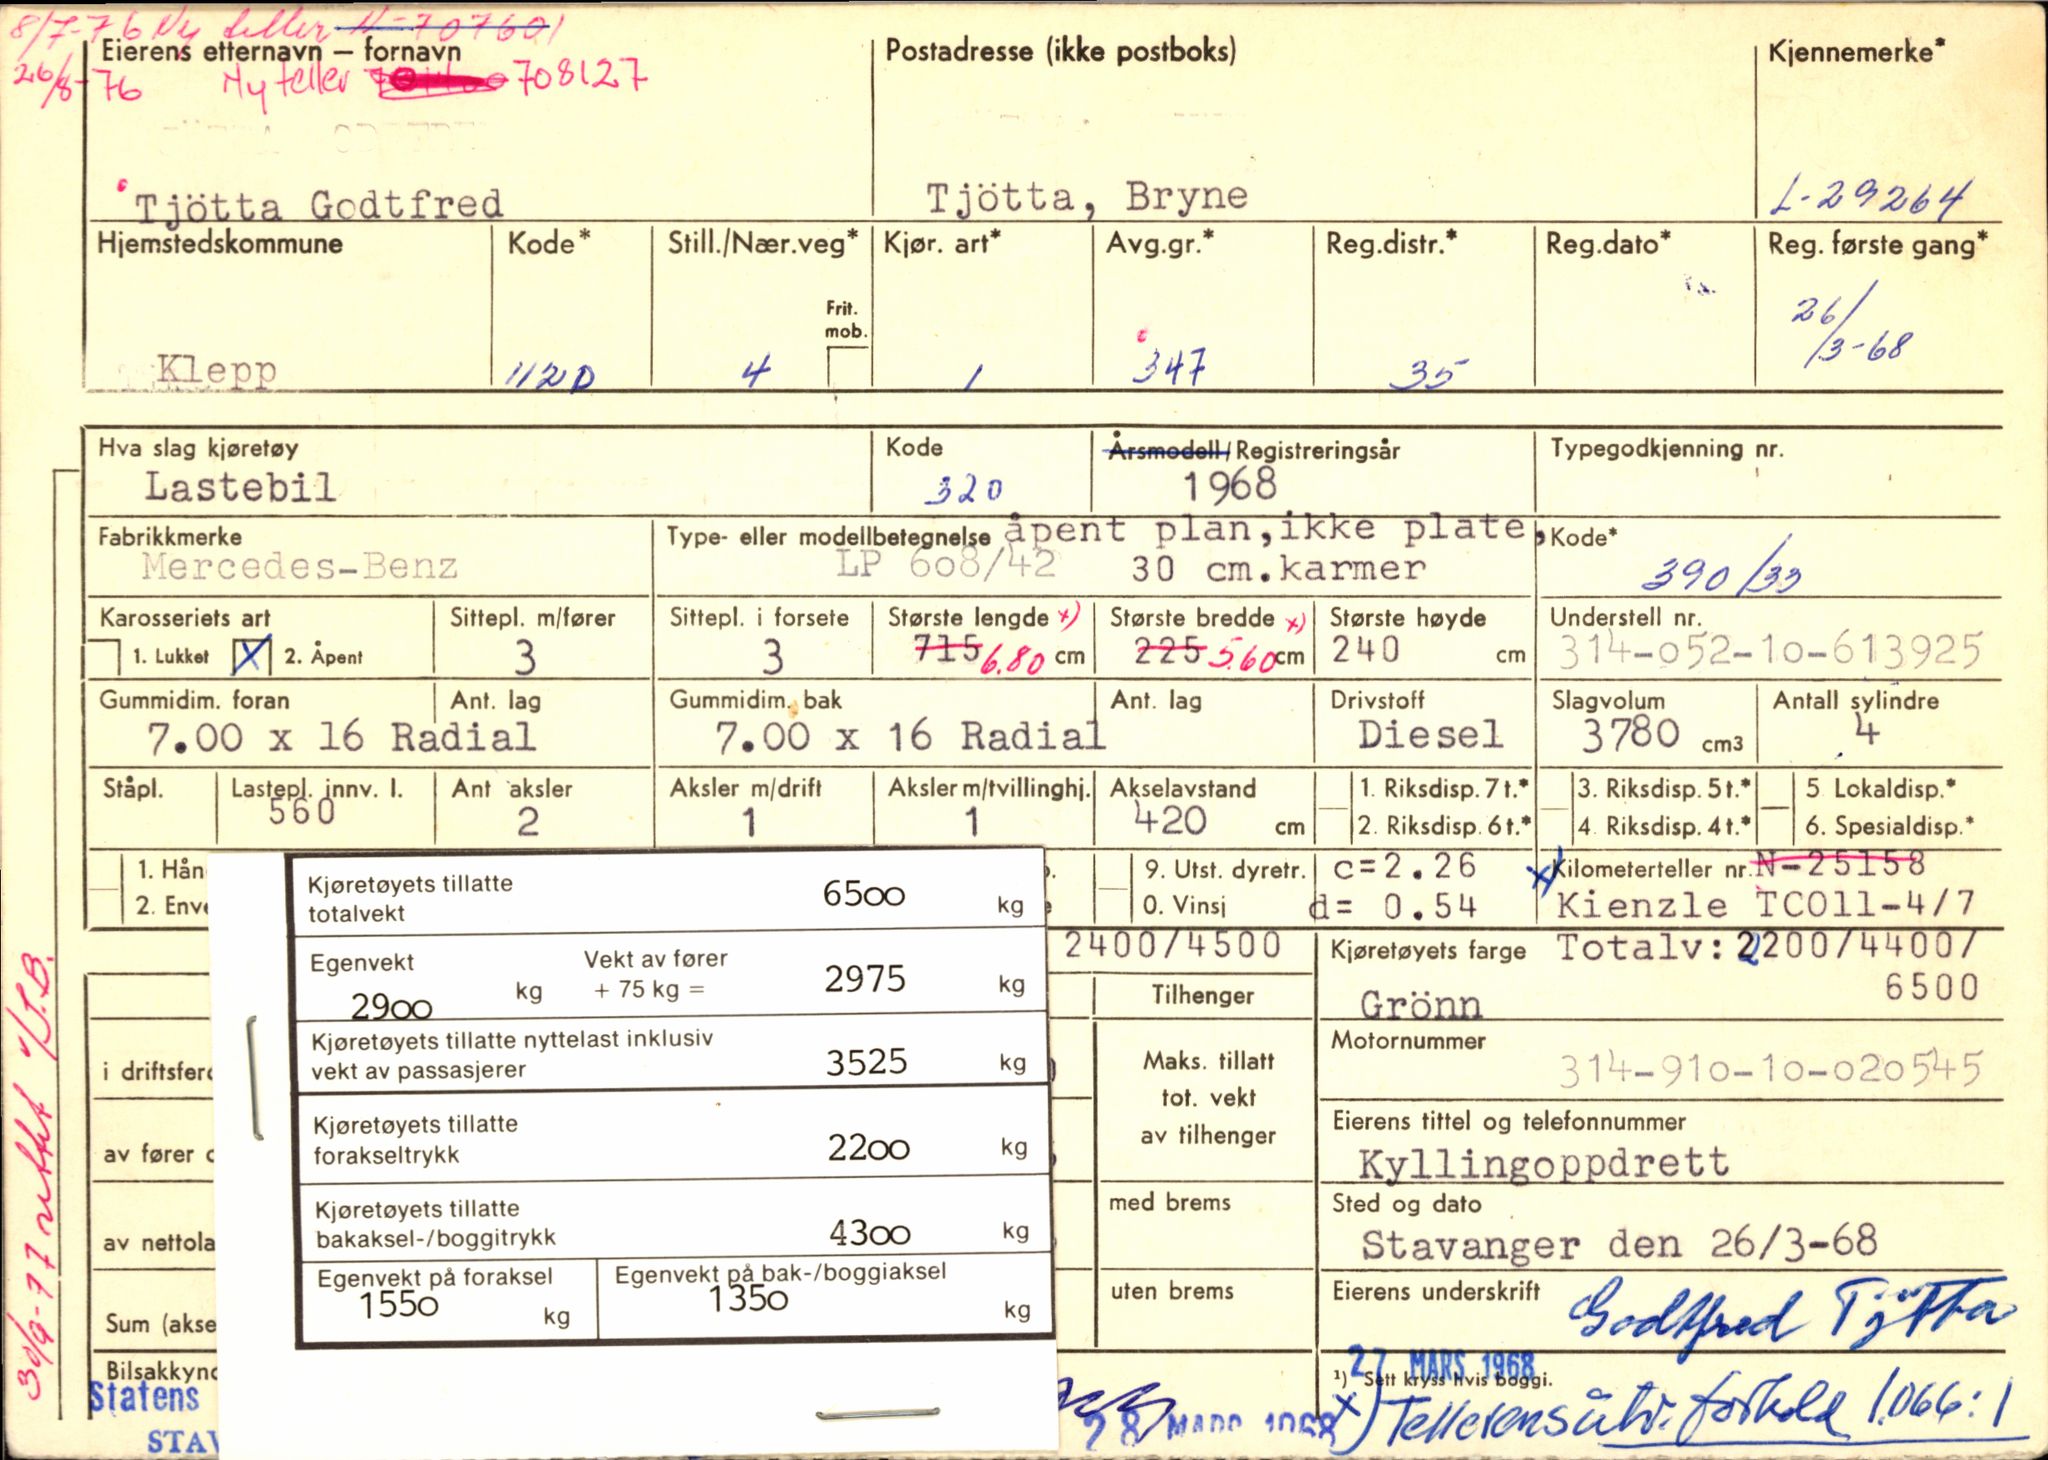 8/7-76 Ny teller N-707601
Eierens etternavn – fornavn
Postadresse (ikke postboks)
Kjennemerke*
26/8-76 Ny teller 708127
Tjötta Godtfred
Tjötta, Bryne
L-29264
Hjemstedskommune
Kode*
Still./Nær.veg*
Kjør. art*
Avg.gr.*
Reg.distr.*
Reg.dato*
Reg. første gang*
Frit. mob.
26/3-68
Klepp
1120
4
1
347
35
Hva slag kjøretøy
Kode
Årsmodell/Registreringsår
Typegodkjenning nr.
Lastebil
320
1968
Fabrikkmerke
Type- eller modellbetegnelse åpent plan, ikke plate,
Kode*
Mercedes-Benz
LP 608/42 30 cm.karmer
390/33
Karosseriets art
Sittepl. m/fører
Sittepl. i forsete
Største lengde x)
Største bredde x)
Største høyde
Understell nr.
1. Lukket X 2. Åpent
3
3
715 6.80 cm
225 5.60 cm
240 cm
314-052-10-613925
Gummidim. foran
Ant. lag
Gummidim. bak
Ant. lag
Drivstoff
Slagvolum
Antall sylindre
7.00 x 16 Radial
7.00 x 16 Radial
Diesel
3780 cm3
4
Ståpl.
Lastepl. innv. l.
Ant aksler
Aksler m/drift
Aksler m/tvillinghj.
Akselavstand
1. Riksdisp. 7 t.*
3. Riksdisp. 5 t.*
5 Lokaldisp.*
560
2
1
1
420 cm
2. Riksdisp. 6 t.*
4. Riksdisp. 4 t.*
6. Spesialdisp.*
1. Hån
9. Utst. dyretr.
c=2.26
x) Kilometerteller nr. N-25158
2. Enve
0. Vinsj
d= 0.54
Kienzle TCO11-4/7
Kjøretøyets tillatte totalvekt
6500 kg
2400/4500
Kjøretøyets farge
Totalv: 2200/4400/
6500
Egenvekt
2900 kg
Vekt av fører
+ 75 kg =
2975 kg
Tilhenger
Grönn
Kjøretøyets tillatte nyttelast inklusiv
vekt av passasjerer
3525 kg
i driftsferd
Maks. tillatt
tot. vekt
av tilhenger
Motornummer
314-910-10-020545
Kjøretøyets tillatte
forakseltrykk
2200 kg
av fører o
Eierens tittel og telefonnummer
Kyllingoppdrett
Kjøretøyets tillatte
bakaksel-/boggitrykk
4300 kg
av nettola
med brems
Sted og dato
Stavanger den 26/3-68
Egenvekt på foraksel
1550 kg
Egenvekt på bak-/boggiaksel
1350 kg
Sum (akse
uten brems
Eierens underskrift
Godtfred Tjøtta
Bilsakkynd
27 MARS 1968
1) Sett kryss hvis boggi.
Statens
STAV
28 MARS 1968
x) Tellerens utv. forhold 1.066:1
30/9-77 rettet